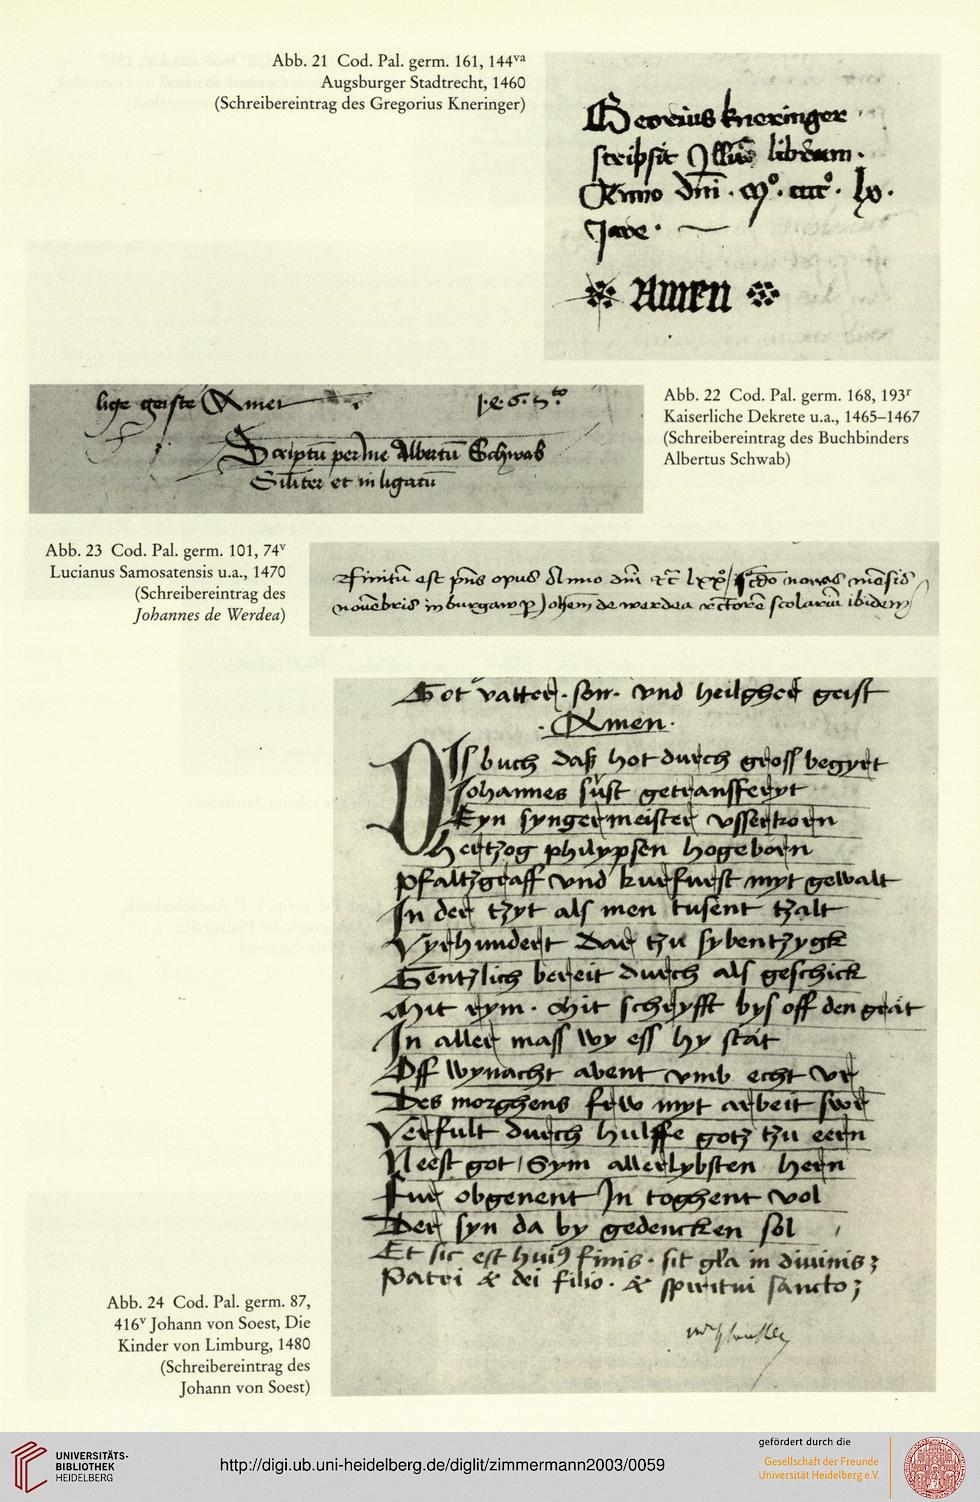 Abb. 21 Cod. Pal. germ. 161, 144va
Augsburger Stadtrecht, 1460
(Schreibereintrag des Gregorius Kneringer)
kneringer
scripsit Illum librum.
Anno dni. Mo. cccco. lx.
Jare.
Amen
lige geiste Amen 1.4.6.5.to
Scriptu per me Albertu Schwab
Siliter et inligatu
Abb. 22 Cod. Pal. germ. 168, 193r
Kaiserliche Dekrete u.a., 1465–1467
(Schreibereintrag des Buchbinders
Albertus Schwab)
Abb. 23 Cod. Pal. germ. 101, 74v
Lucianus Samosatensis u.a., 1470
(Schreibereintrag des
Johannes de Werdea)
Finitu est pns opus Anno dni lxxo nonas mensis
nouebris in burgaw p Johem de werdea rectore scolarium ibidem
Got vatter. son. vnd heilgher geist
.Amen.
DIss buch dass hot durch gross begyrt
Johannes sust getransfferyt
Eyn syngermeister vsserkorn
hertzog philypsen hogeborn
pfaltzgraff vnd kurfurst myt gewalt
In der tzyt als men tusent tzalt
Vyrhundert dar tzu sybentzygk
Gentzlich bereit durch als geschick
Mit rym. Mit schryfft bys off den grat
In aller mass wy ess hy stat
Off wynacht abent vmb echt vr
Des morghens frw myt arbeit swr
Verfult durch hulffe gotz tzu eern
Neest got / Sym allerlybsten hern
Fur obgenent In toghent vol
Der syn da by gedencken sol
Et sic est hui9 finis. sit gla in diuinis;
Patri & dei filio. & spiritui sancto;
Abb. 24 Cod. Pal. germ. 87,
416v Johann von Soest, Die
Kinder von Limburg, 1480
(Schreibereintrag des
Johann von Soest)
UNIVERSITÄTS-
BIBLIOTHEK
HEIDELBERG
http://digi.ub.uni-heidelberg.de/diglit/zimmermann2003/0059
gefördert durch die
Gesellschaft der Freunde
Universität Heidelberg e.V.